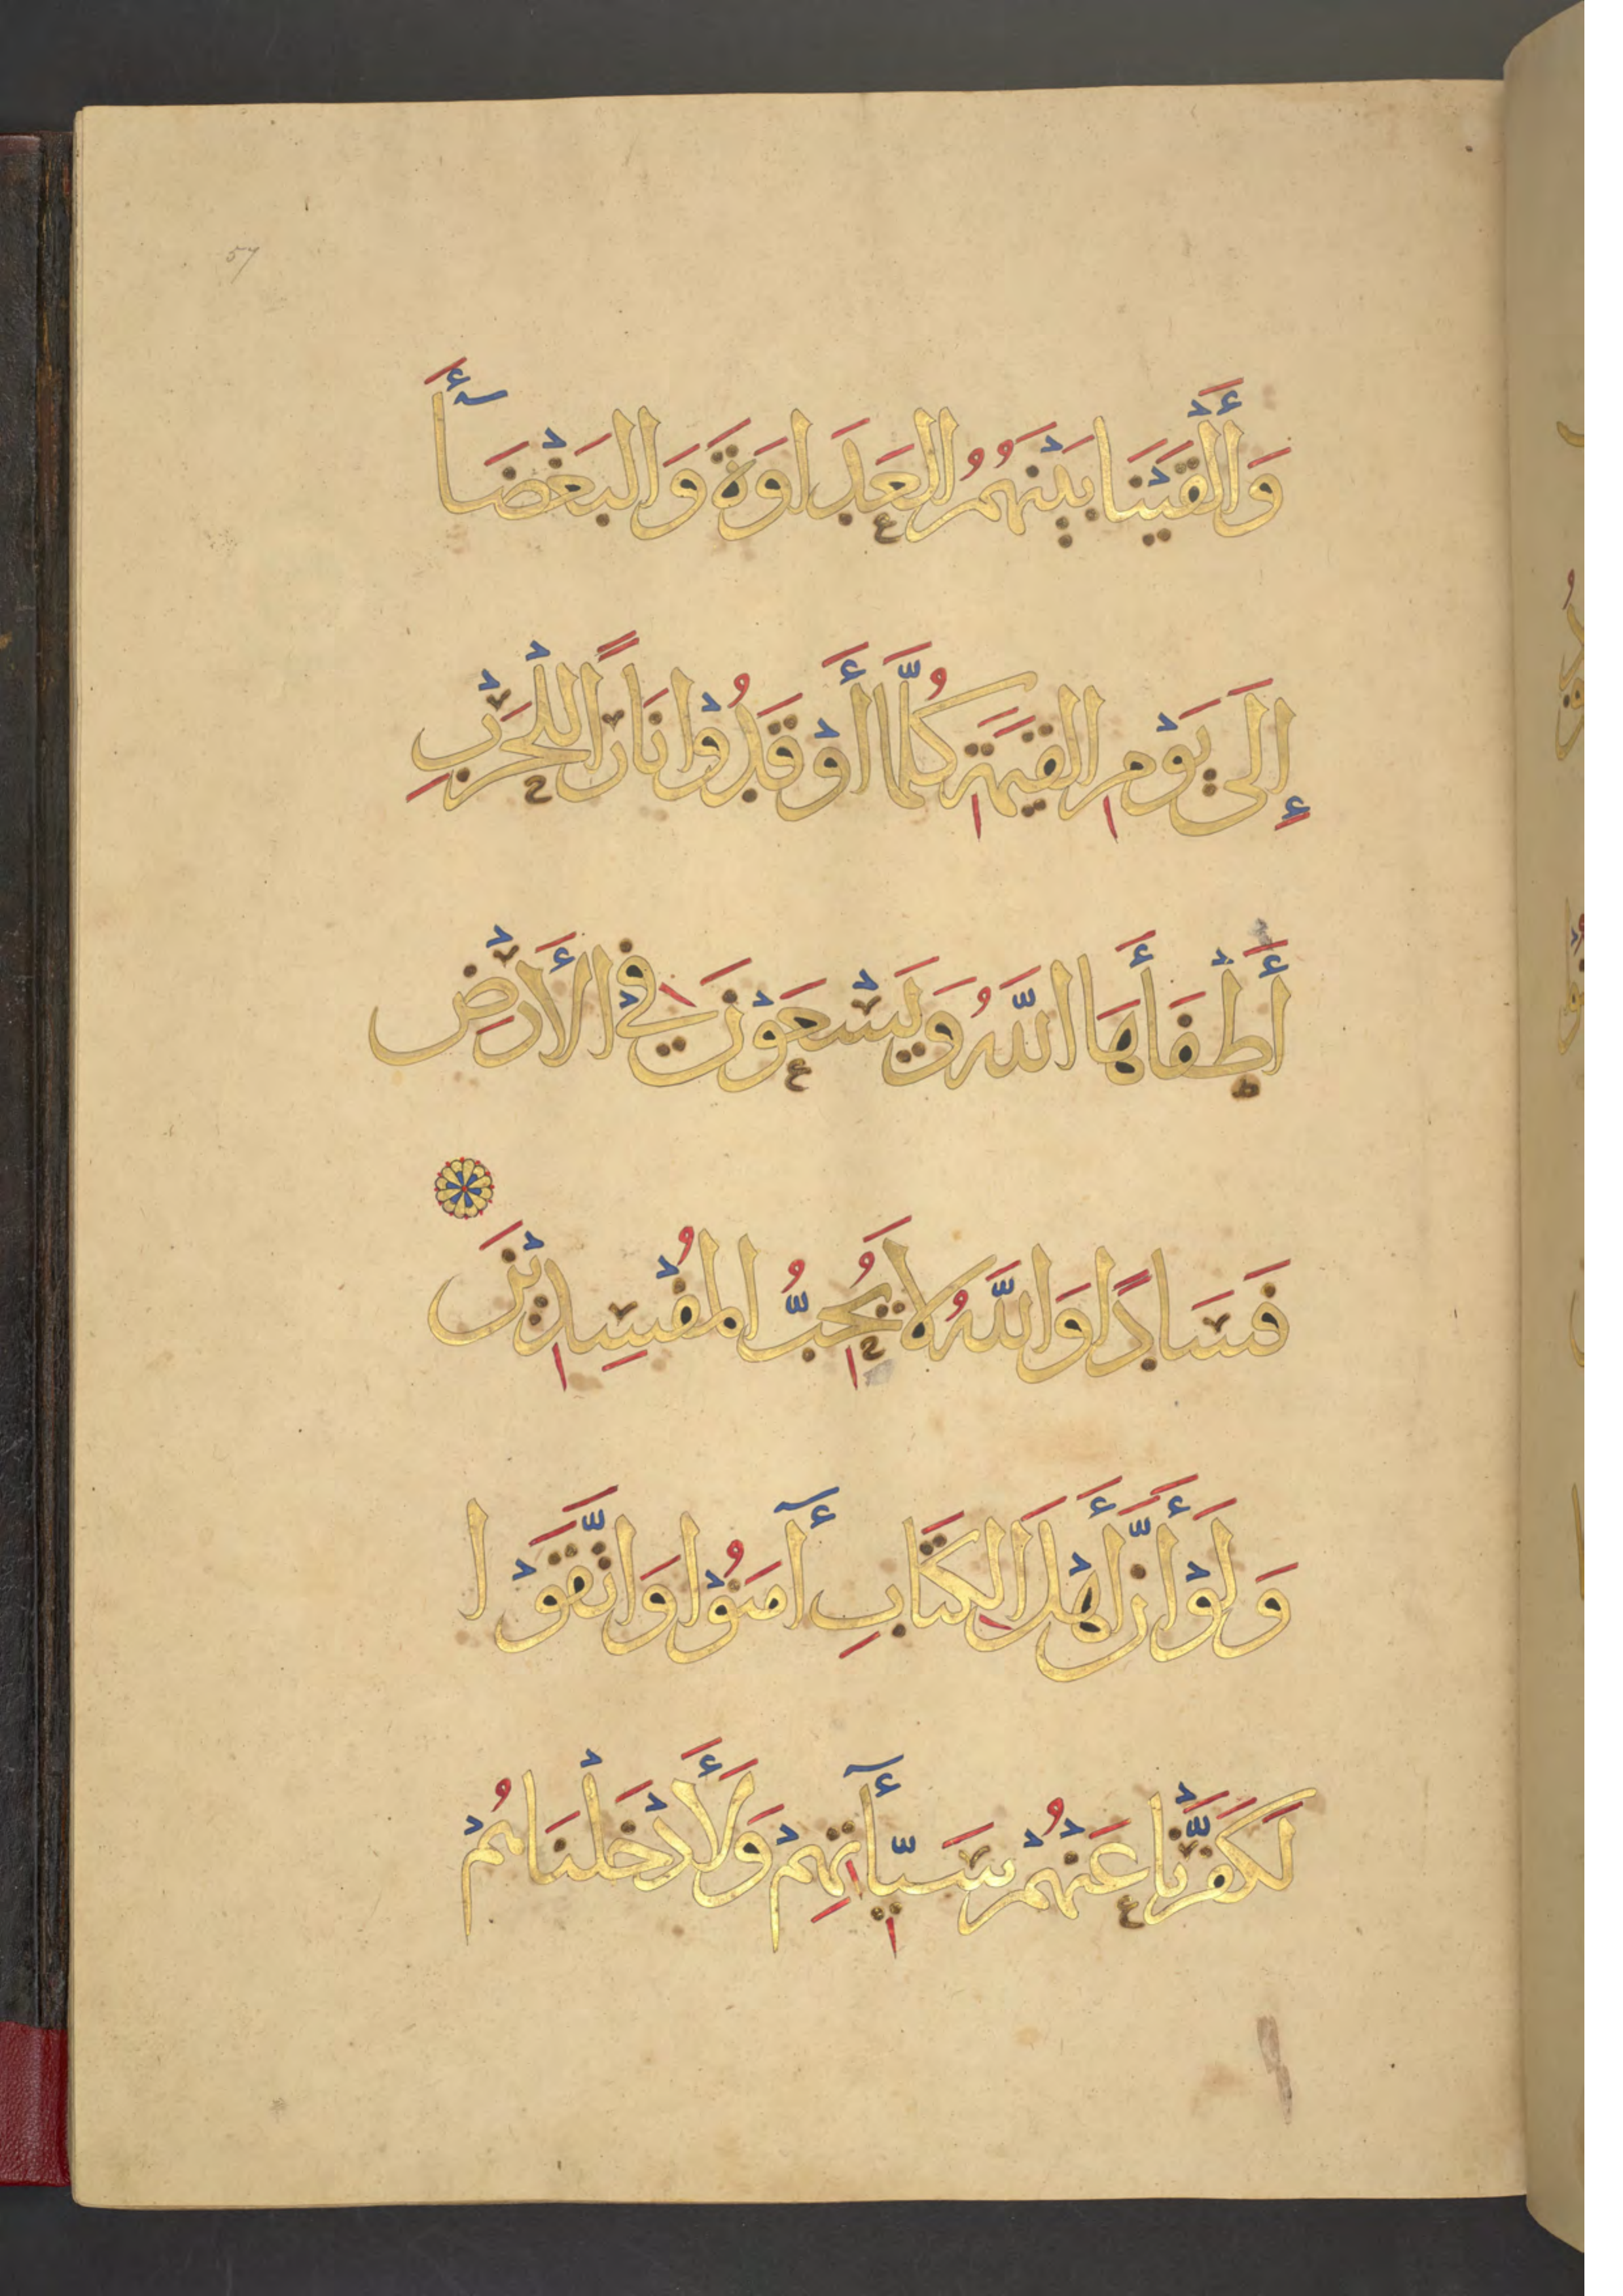 57
وَأَلْقَيْنَا بَيْنَهُمُ الْعَدَاوَةَ وَالْبَغْضَآأَ
إِلَى يَوْمِ الْقِيَمَةِ كُلَّمَا أَوْقَدُوْا نَارًا لِلْحَرْبِ
أَطْفَأَهَا اللَّهُ وَيَسْعَوْنَ فِي الْأَرْضِ
فَسَادًا وَاللَّهُ لَا يُحِبُّ الْمُفْسِدِيْنَ
وَلَوْ أَنَّ أَهْلَ الْكِتَابِ أٓمَنُوْا وَاتَّقَوْا
لَكَفَّرْنَا عَنْهُمْ سَيِّأٓتِهِمْ وَلَأَدْخَلْنَاهُمْ